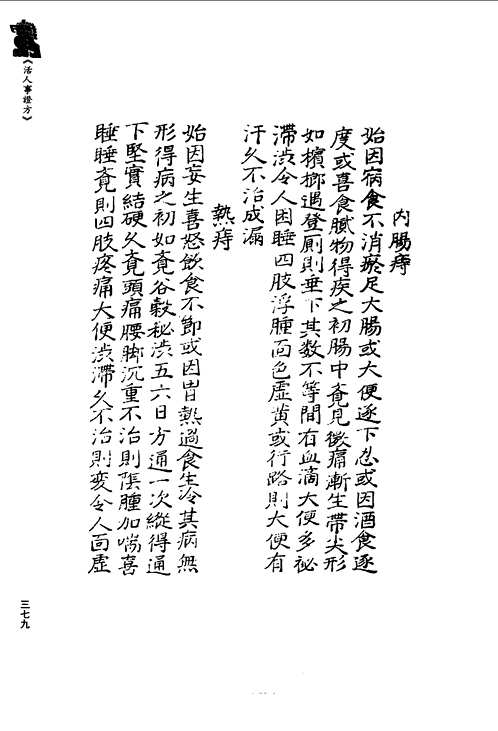 《活人事證方》
內腸痔
始因病食不消瘀足大腸或大便逐下忍或因酒食逐
度或喜食膩物得疾之初腸中覔見微痛漸生帶尖形
如檳榔遇登厠則垂下其数不等間有血滴大便多祕
滯澁令人困睡四肢浮腫面色虛黄或行路則大便有
汗久不治成漏
熱痔
始因妄生喜怒飲食不節或因胃熱過食生冷其病無
形得病之初如覔谷穀秘澁五六日方通一次縱得通
下堅實結硬久覔頭痛腰脚沉重不治則陰腫加喘喜
睡睡覔則四肢疼痛大便澁滯久不治則变令人面虛
三七九